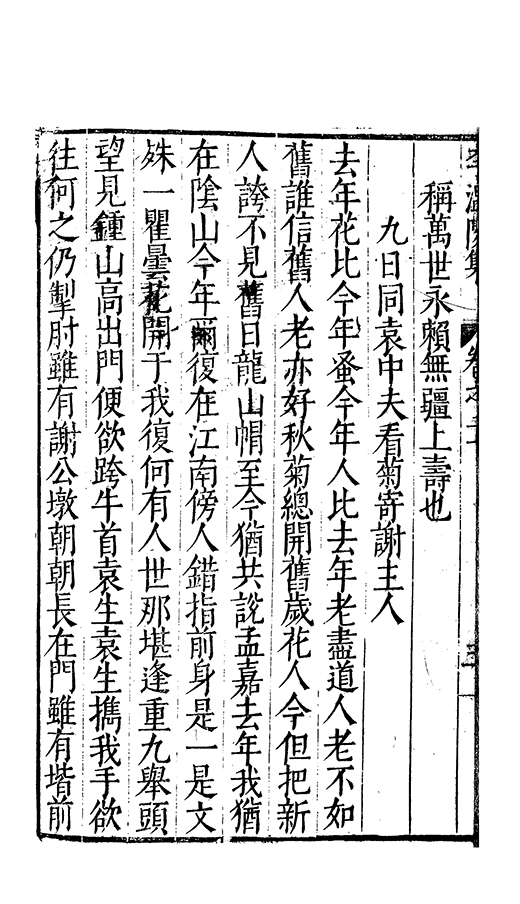 李溫陵集 卷之二
稱萬世永賴無疆上壽也
九日同袁中夫看菊寄謝主人
去年花比今年蚤今年人比去年老盡道人老不如
舊誰信舊人老亦好秋菊總開舊歲花人今但把新
人誇不見舊日龍山帽至今猶共說孟嘉去年我猶
在陰山今年爾復在江南傍人錯指前身是一是文
殊一瞿曇花開于我復何有人世那堪逢重九舉頭
望見鍾山高出門便欲跨牛首袁生袁生攜我手欲
往何之仍掣肘雖有謝公墩朝朝長在門雖有堦前